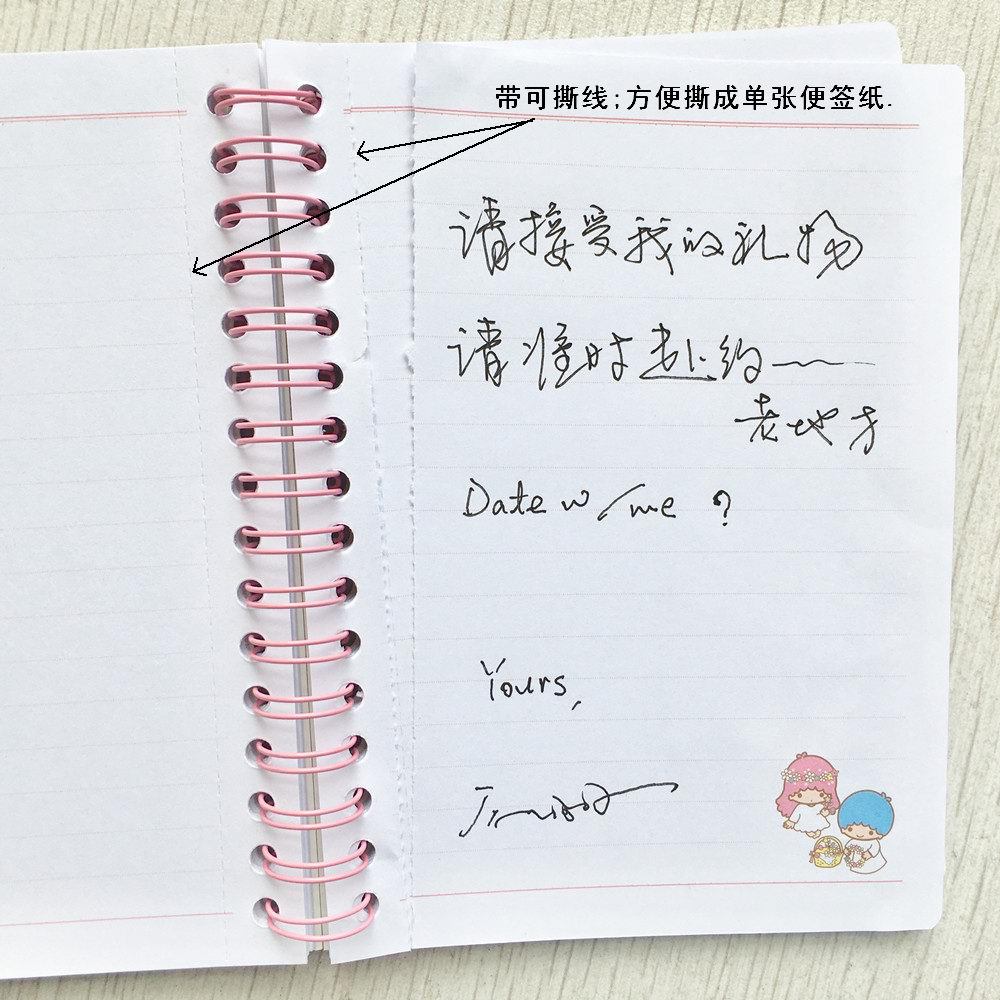 带可撕线;方便撕成单张便签纸.
请接受我的礼物
请准时赴约——
老地方
Date w/me ?
Yours,